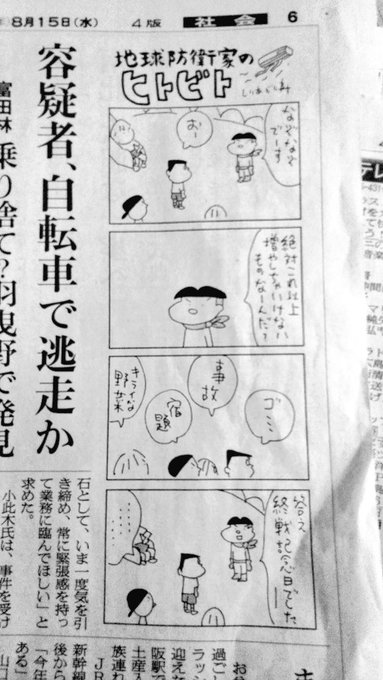 8月15日(水)
4版
社会
6
容疑者、自転車で逃走か
富田林
乗り捨て?羽曳野で発見
地球防衛家の
ヒトビト
しりあがり寿
なぞなぞ
でーす
お
絶対これ以上
増やしちゃいけない
ものなーんだ?
ゴミ
事故
宿題
キライな
野菜
答え
終戦記念日でした
石として、いま一度気を引
き締め、常に緊張感を持っ
て業務に臨んでほしい」と
求めた。
小此木氏は、事件を受け
過ご
ラッシ
迎えた
阪駅で
土産入
族連れ
JR
新幹線
後から
「今年
ある」
山口